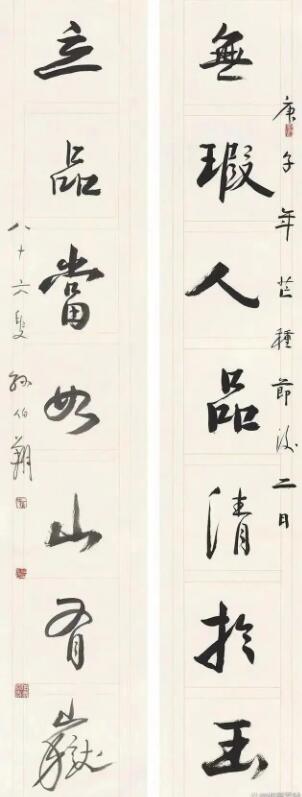 無瑕人品清於玉
庚子年芒種節後二日
立品當如山有嶽
八十六叟 孫伯翔